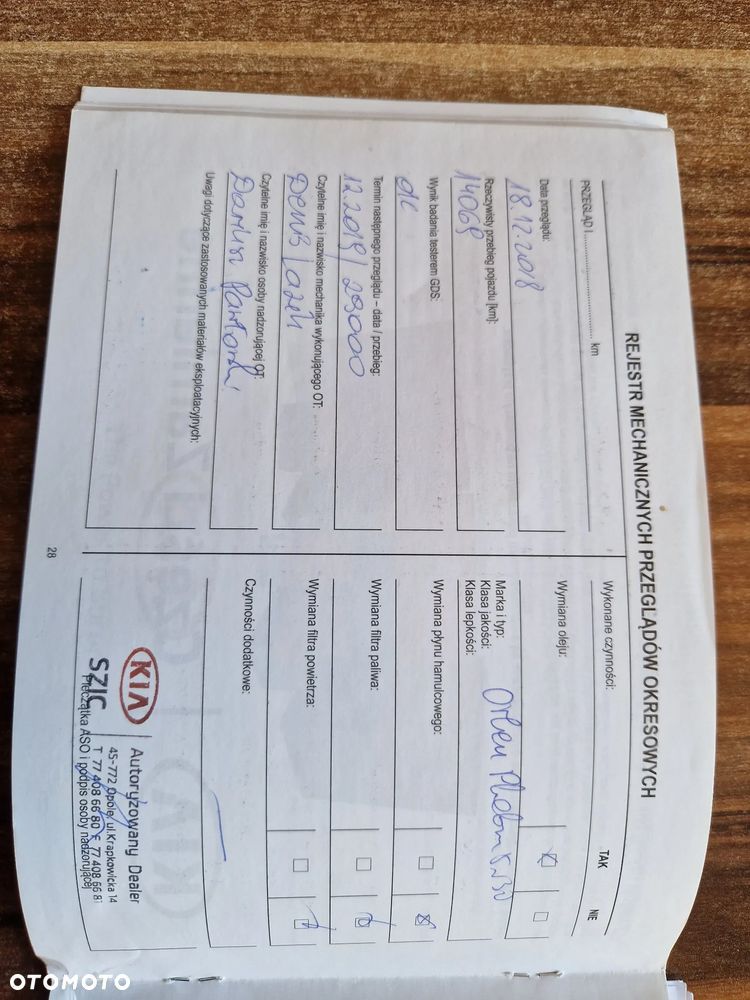 REJESTR MECHANICZNYCH PRZEGLĄDÓW OKRESOWYCH
PRZEGLĄD I .............................. km
Data przeglądu:
18.12.2018
Rzeczywisty przebieg pojazdu [km]:
14069
Wynik badania testerem GDS:
ok
Termin następnego przeglądu – data / przebieg:
12.2019/29000
Czytelne imię i nazwisko mechanika wykonującego OT:
Denis
Czytelne imię i nazwisko osoby nadzorującej OT:
Dariusz
Uwagi dotyczące zastosowanych materiałów eksploatacyjnych:
Wykonane czynności: TAK NIE
Wymiana oleju:
Marka i typ:
Klasa jakości:
Klasa lepkości:
Orlen Platinum 5W30
Wymiana płynu hamulcowego:
Wymiana filtra paliwa:
Wymiana filtra powietrza:
Czynności dodatkowe:
KIA
SZIC
Autoryzowany Dealer
45-772 Opole, ul. Krapkowicka 14
T 77 408 66 80 F 77 408 66 81
Pieczątka ASO i podpis osoby nadzorującej
28
OTOMOTO